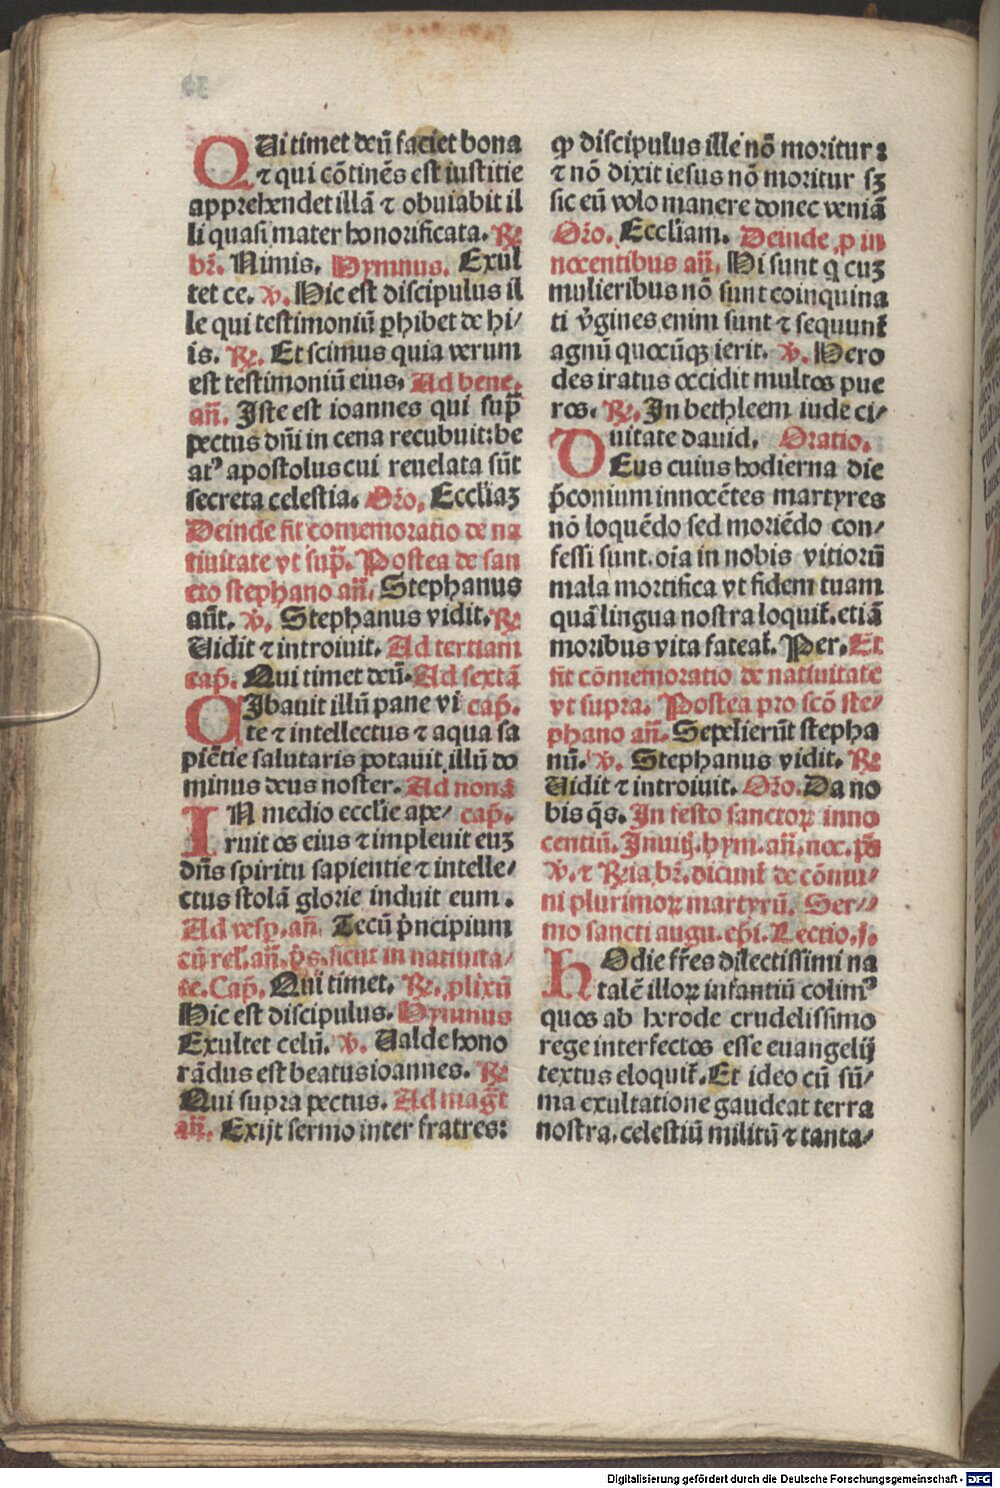 QUi timet deū faciet bona
⁊ qui cōtinēs est iustitie
apprehendet illā ⁊ obuiabit il
li quasi mater honorificata. R̷
br̄. Nimis. Hymnus. Exul
tet ce. v̷. Hic est discipulus il
le qui testimoniū ꝑhibet de hi/
is. R̷. Et scimus quia verum
est testimoniū eius. Ad bene.
añ. Iste est ioannes qui sup̄
pectus dñi in cena recubuit: be
atꝰ apostolus cui reuelata sūt
secreta celestia. Oŕo. Eccliaꝫ
Deinde fit comemoratio de na
tiuitate vt sup̄. Postea de san
cto stephano añ. Stephanus
aūt. v̷. Stephanus vidit. R̷
Uidit ⁊ introiuit. Ad tertiam
cap̄. Qui timet deū. Ad sextā
CIbauit illū pane vi cap̄.
te ⁊ intellectus ⁊ aqua sa
piētie salutaris potauit illū do
minus deus noster. Ad nonā
IN medio ecclie ape/ cap̄.
ruit os eius ⁊ impleuit euꝫ
dñs spiritu sapientie ⁊ intelle/
ctus stolā glorie induit eum.
Ad vesp̄. añ. Tecū pͥncipium
cū rel'. añ. ꝑ̄s. sicut in natiuita/
te. Cap̄. Qui timet. R̷. ꝓlixū
Hic est discipulus. Hymnus
Exultet celū. v̷. Ualde hono
rādus est beatus ioannes. R̷
Qui supra pectus. Ad mag̃t
añ. Exijt sermo inter fratres:
ꝙ discipulus ille nō moritur:
⁊ nō dixit iesus nō moritur sꝫ
sic eū volo manere donec veniā
Oŕo. Eccliam. Deinde ꝓ in
nocentibus añ. Hi sunt q̇ cuꝫ
mulieribus nō sunt coinquina
ti v̇gines enim sunt ⁊ sequunt̄
agnū quocūqꝫ ierit. v̷. Hero
des iratus occidit multos pue
ros. R̷. In bethleem iude ci/
uitate dauid. Oratio.
DEus cuius hodierna die
p̄conium innocētes martyres
nō loquēdo sed moriēdo con/
fessi sunt. oīa in nobis vitiorū
mala mortifica vt fidem tuam
quā lingua nostra loquit̄. etiā
moribus vita fateat̄. Per. Et
fit cōmemoratio de natiuitate
vt supra. Postea pro scō ste/
phano añ. Sepelierūt stepha
nū. v̷. Stephanus vidit. R̷
Uidit ⁊ introiuit. Oŕo. Da no
bis q̄s. In festo sanctoꝝ inno
centiū. Inuit̄. hym. añ. noc. p̄s
v̷. ⁊ R̷ia br̄. dicunt̄ de cōmu/
ni plurimoꝝ martyrū. Ser//
mo sancti augu. ep̄i. Lectio. j.
hOdie fr̄es dilectissimi na
talē illoꝝ infantiū colimꝰ
quos ab herode crudelissimo
rege interfectos esse euangelij
textus eloquit̄. Et ideo cū sū/
ma exultatione gaudeat terra
nostra, celestiū militū ⁊ tanta/
Digitalisierung gefördert durch die Deutsche Forschungsgemeinschaft - DFG